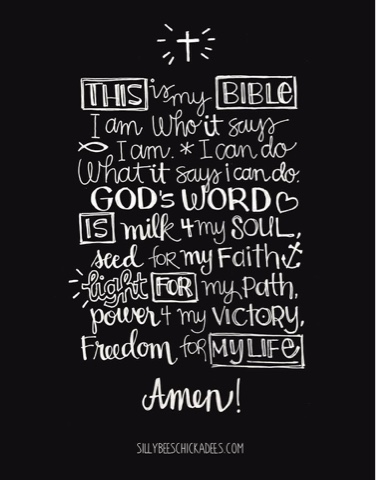 THIS is my BIBLE
I am Who it says
I am. * I can do
What it says i can do.
GOD'S WORD
IS milk 4 my SOUL,
seed for my Faith
light FOR my Path,
power 4 my VICTORY,
Freedom for MY LIFE
Amen!
SILLYBEESCHICKADEES.COM